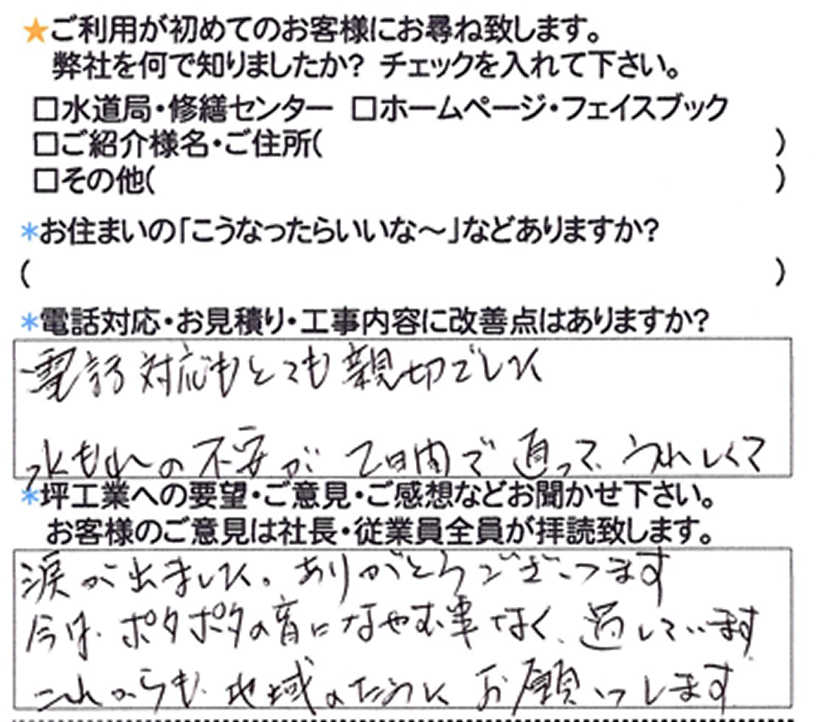 ★ご利用が初めてのお客様にお尋ね致します。
弊社を何で知りましたか? チェックを入れて下さい。
□水道局・修繕センター □ホームページ・フェイスブック
□ご紹介様名・ご住所( )
□その他( )
*お住まいの「こうなったらいいな～」などありますか?
( )
*電話対応・お見積り・工事内容に改善点はありますか?
電話対応もとても親切でした
水もれの不安が 2日間で直って、うれしくて
*坪工業への要望・ご意見・ご感想などお聞かせ下さい。
お客様のご意見は社長・従業員全員が拝読致します。
涙が出ました。ありがとうございます
今は、ポタポタの音になやむ事なく、過しています
これからも、地域のために お願いします